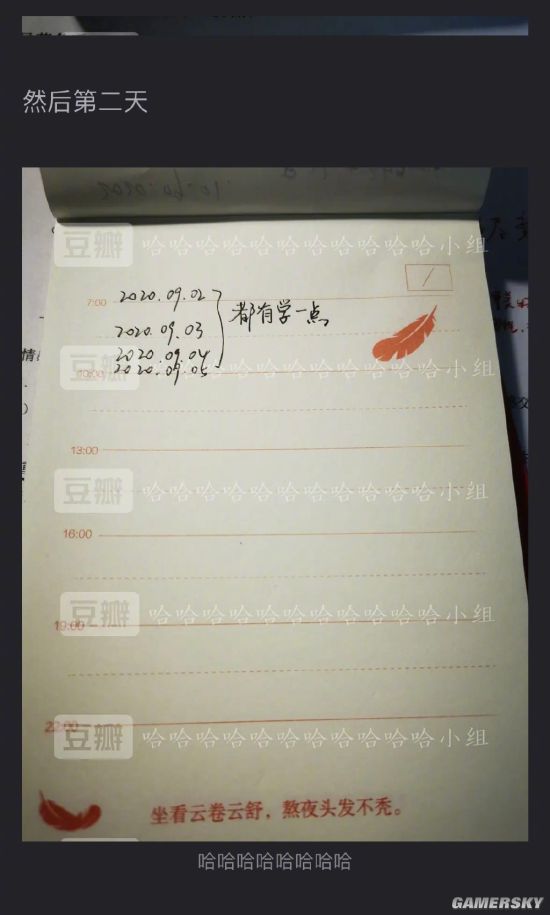 然后第二天
豆瓣 哈哈哈哈哈哈哈哈哈哈哈小组
7:00
2020.09.02
2020.09.03
2020.09.04
2020.09.05
都有学一点
豆瓣 哈哈哈哈哈哈哈哈哈哈哈小组
10:00
13:00
豆瓣 哈哈哈哈哈哈哈哈哈哈哈小组
16:00
豆瓣 哈哈哈哈哈哈哈哈哈哈哈小组
19:00
豆瓣 哈哈哈哈哈哈哈哈哈哈哈小组
22:00
坐看云卷云舒，熬夜头发不秃。
哈哈哈哈哈哈哈哈
GAMERSKY